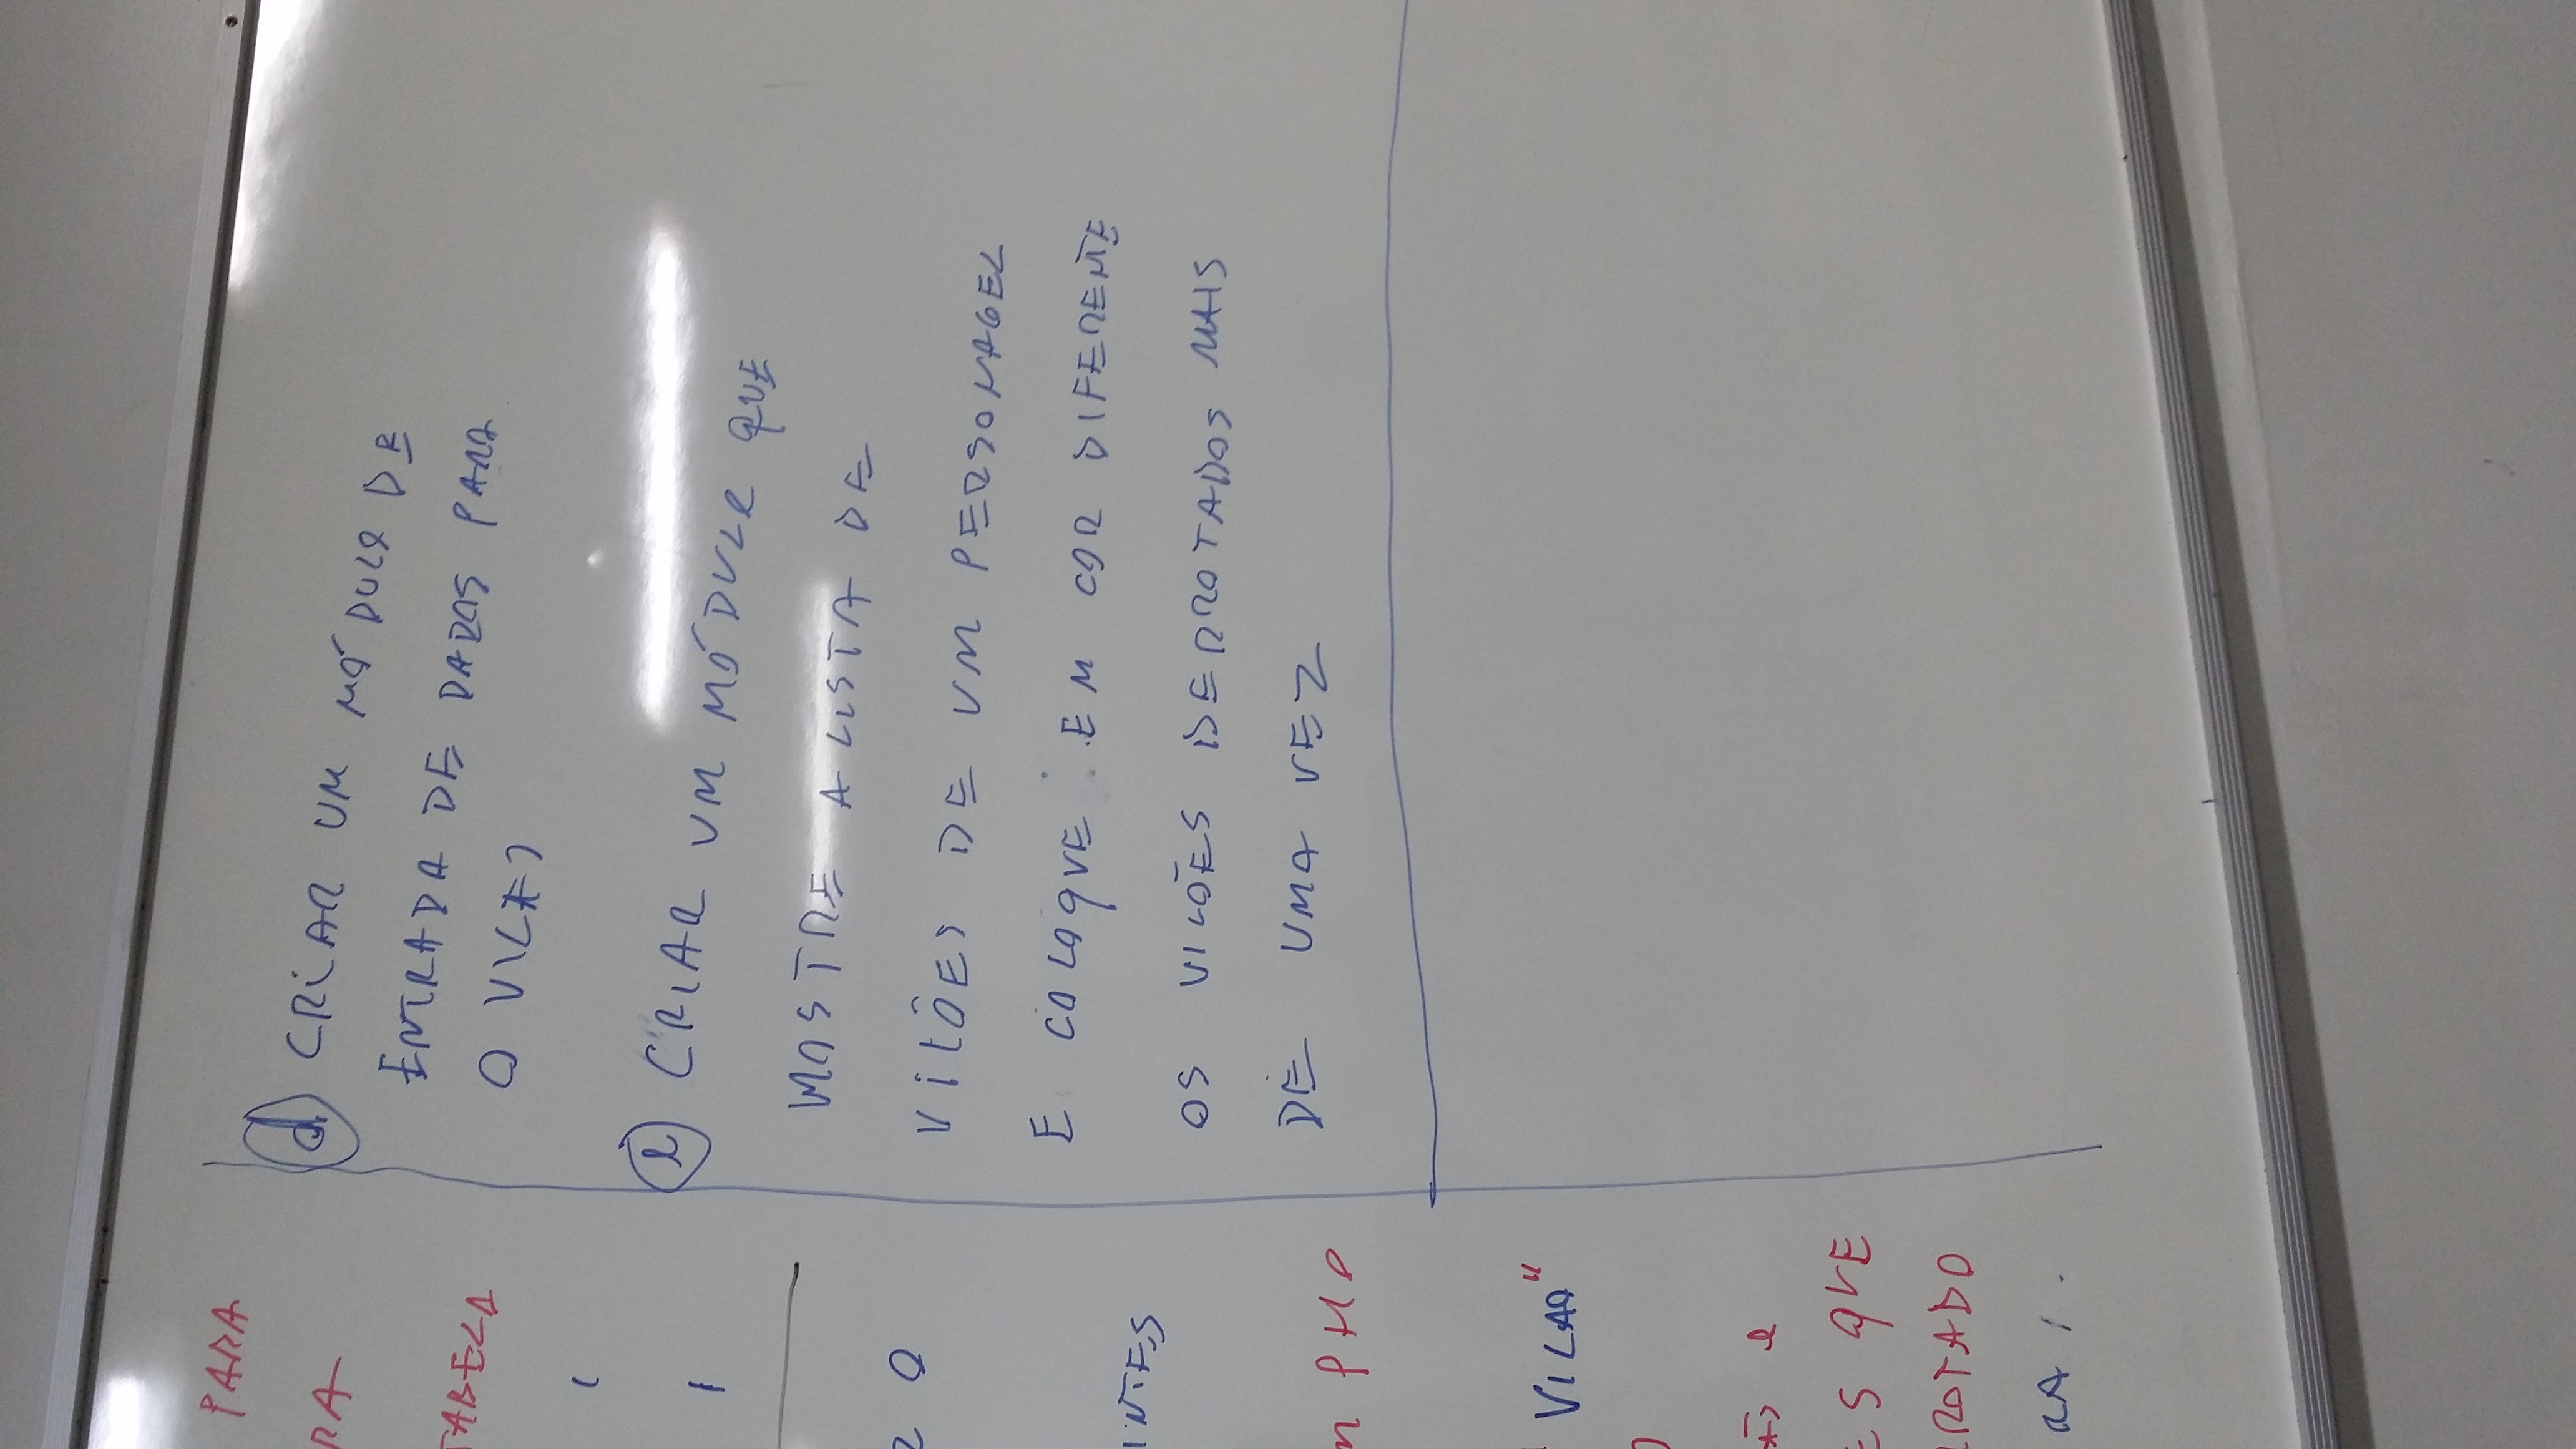 PARA
RA
TABELA
O
INTES
PHP
VILAO"
e
ES QUE
ROTADO
RA
d CRIAR UM MÓDULO DE
ENTRADA DE DADOS PARA
O VILÃO
e CRIAR UM MÓDULO QUE
MOSTRE A LISTA DE
VILÕES DE UM PERSONAGEM
E COLOQUE EM COR DIFERENTE
OS VILÕES DERROTADOS MAIS
DE UMA VEZ